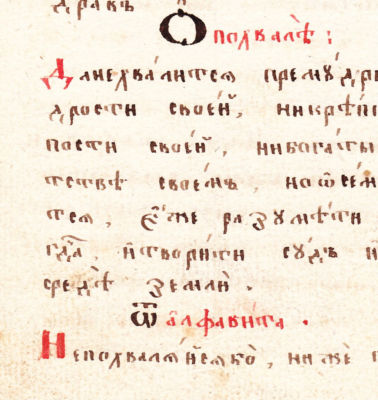 дравъ
Ѽ похвалѣ :
Да не хвалится премꙋдри
дрости своей, ни крѣп
пости своей, ни богаты
тствѣ своемъ, но ѡ сем
тся, є҆́же разумѣти
гдⷭ҇а, и҆ твори́ти судъ и҆
средѣ̀ земли̑ .
Ѿ алфави́та .
Не похваля́й сѧ ко̀, ниже